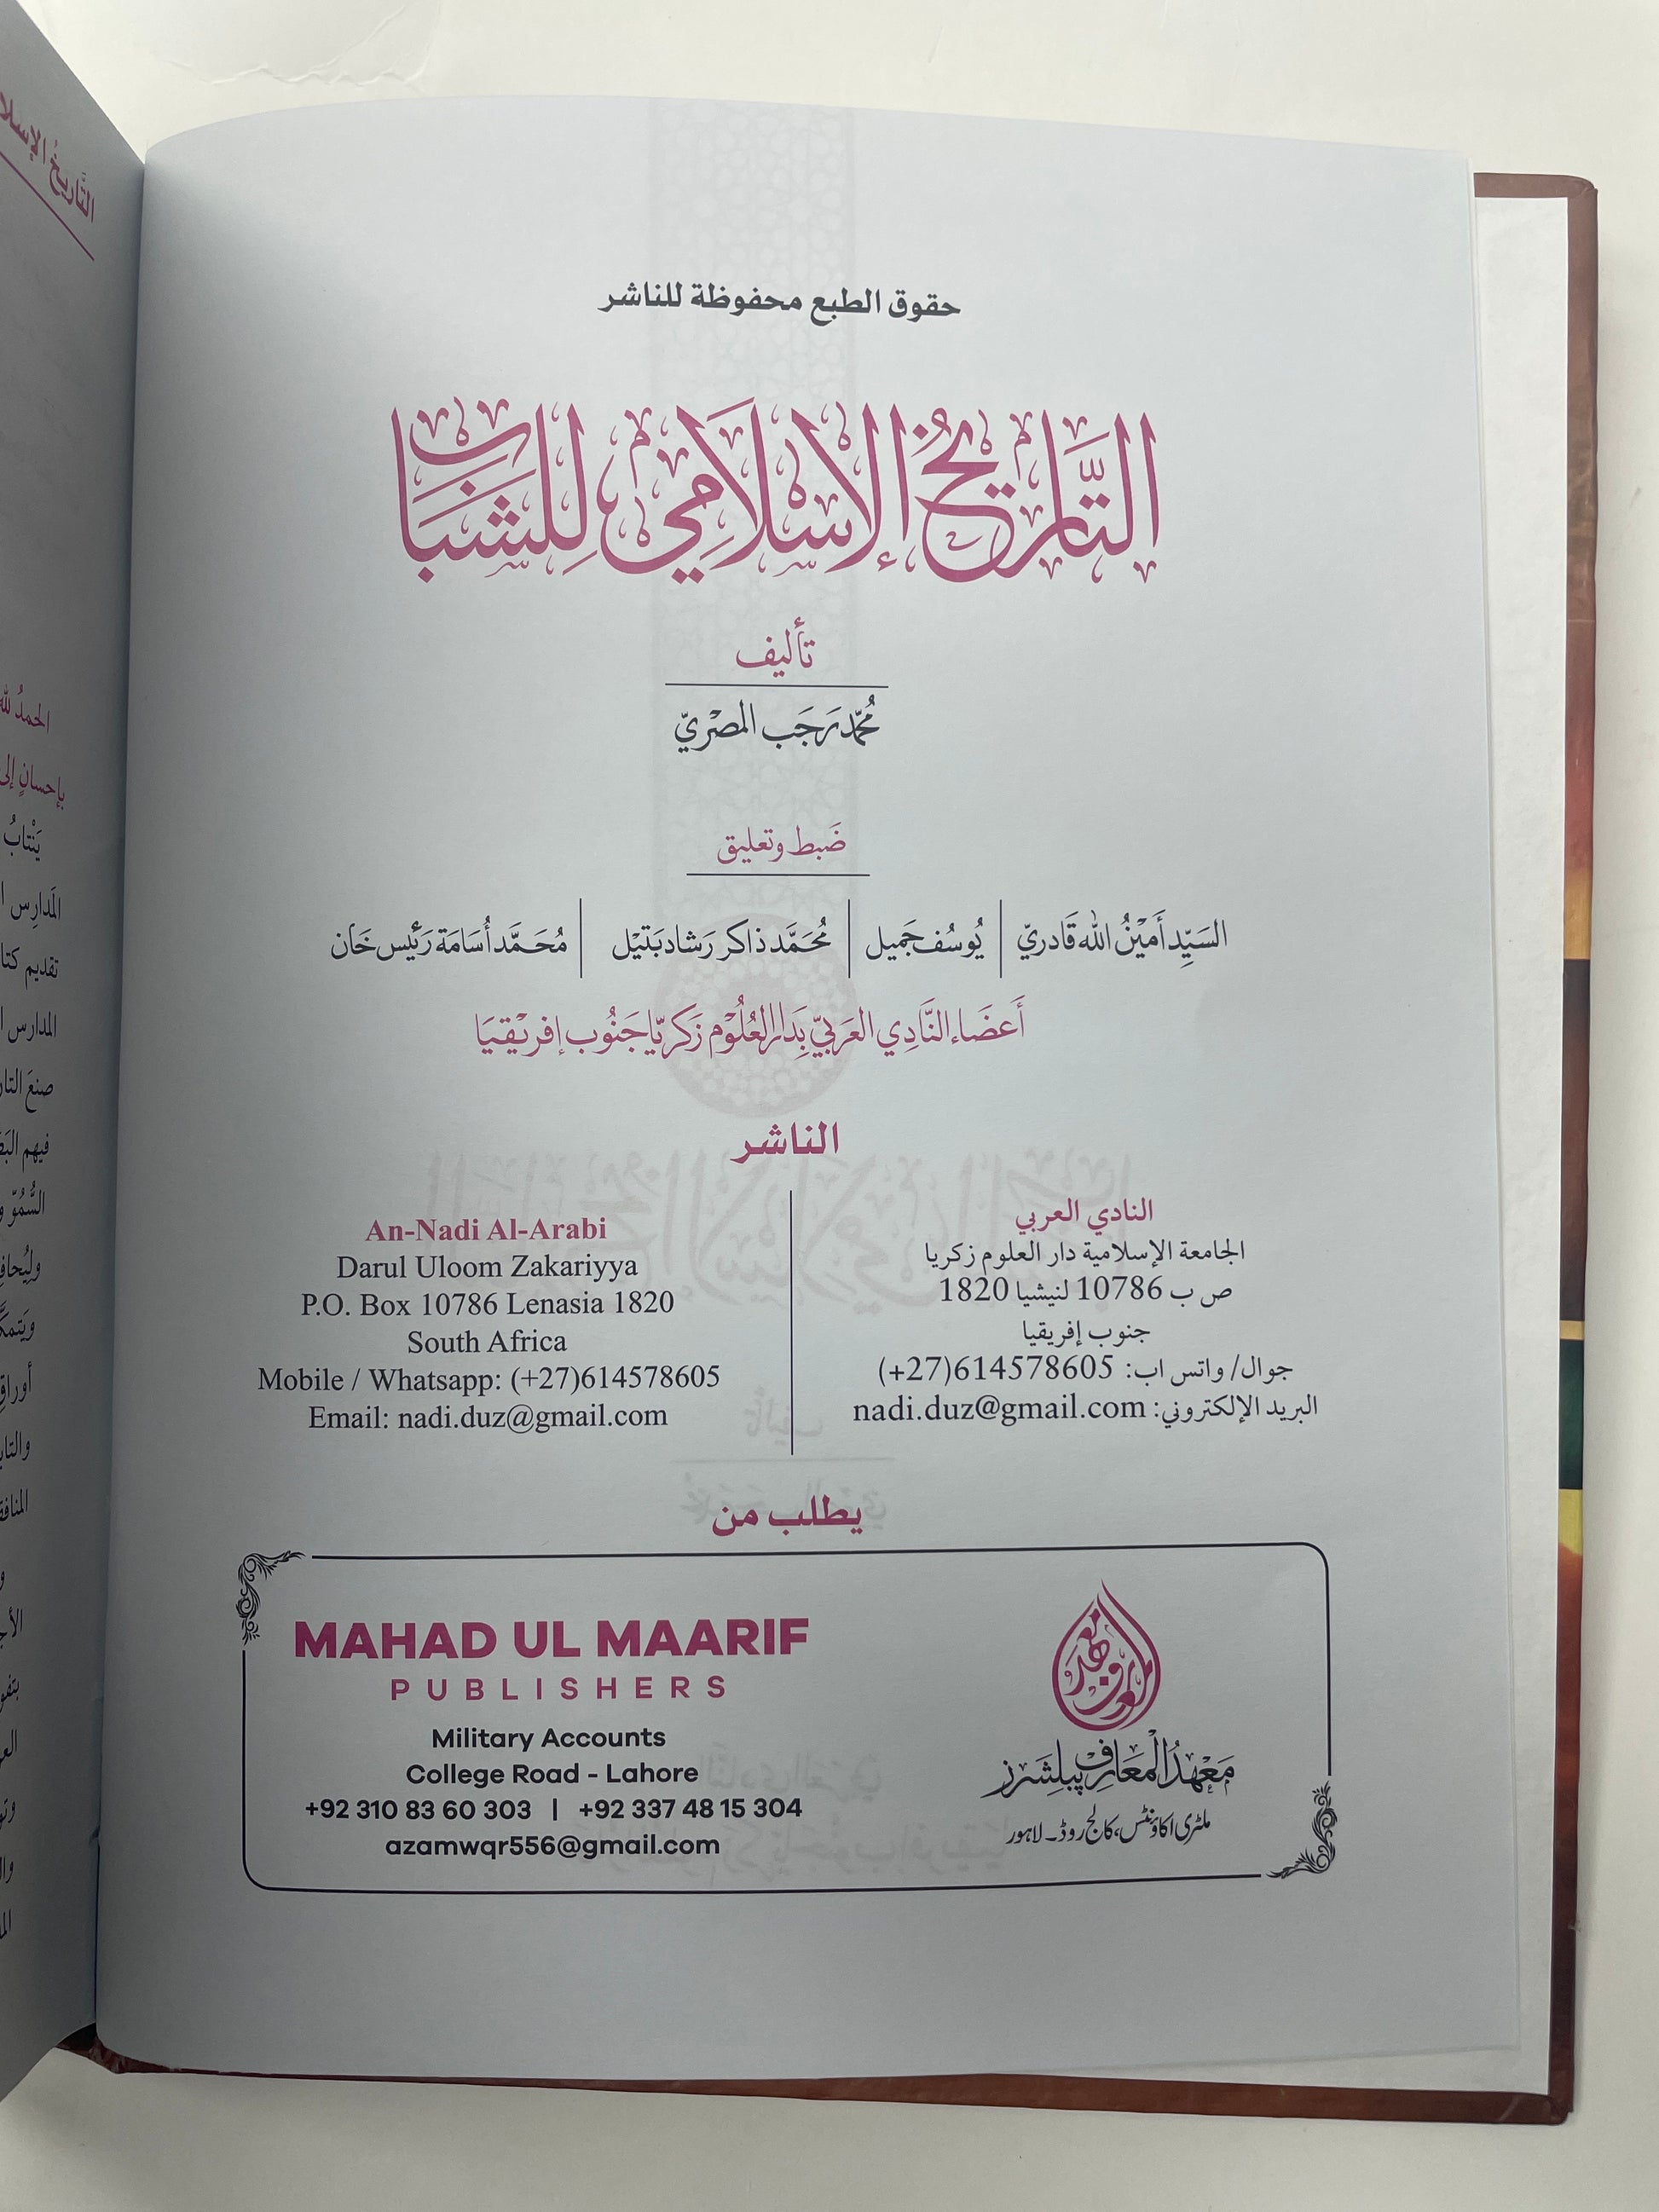 حقوق الطبع محفوظة للناشر
التَّارِيخُ الإِسْلَامِي لِلشَّبَاب
تأليف
مُحمّد رَجَب المصْريّ
ضَبط وتعليق
السَيِّد أَمِيْنُ الله قَادريّ | يُوسُف جَميل | مُحَمَّد ذاكر رَشاد بَتيْل | مُحَمَّد أُسَامَة رَئِيْس خَان
أَعضَاء النَّادِي العَرَبيّ بِدَار العُلُوْم زَكَريّا جَنُوب إفريْقيَا
الناشر
النادي العربي
الجامعة الإسلامية دار العلوم زكريا
ص ب 10786 لنيشيا 1820
جنوب إفريقيا
جوال/ واتس اب: 614578605(27+)
البريد الإلكتروني: nadi.duz@gmail.com
An-Nadi Al-Arabi
Darul Uloom Zakariyya
P.O. Box 10786 Lenasia 1820
South Africa
Mobile / Whatsapp: (+27)614578605
Email: nadi.duz@gmail.com
يطلب من
MAHAD UL MAARIF
PUBLISHERS
Military Accounts
College Road - Lahore
+92 310 83 60 303 | +92 337 48 15 304
azamwqr556@gmail.com
معهد المعارف
مَعْهَدُ الْمَعَارِف پبلِشَرز
ملٹری اکاؤنٹس، کالج روڈ۔ لاہور
التَّاريخُ الإسلا
الحمدُ لله
بإحسانٍ إلى
يَنْتابُ
المَدارِس
تقديم كتا
المدارس
صنعَ التار
السُّمُوّ و